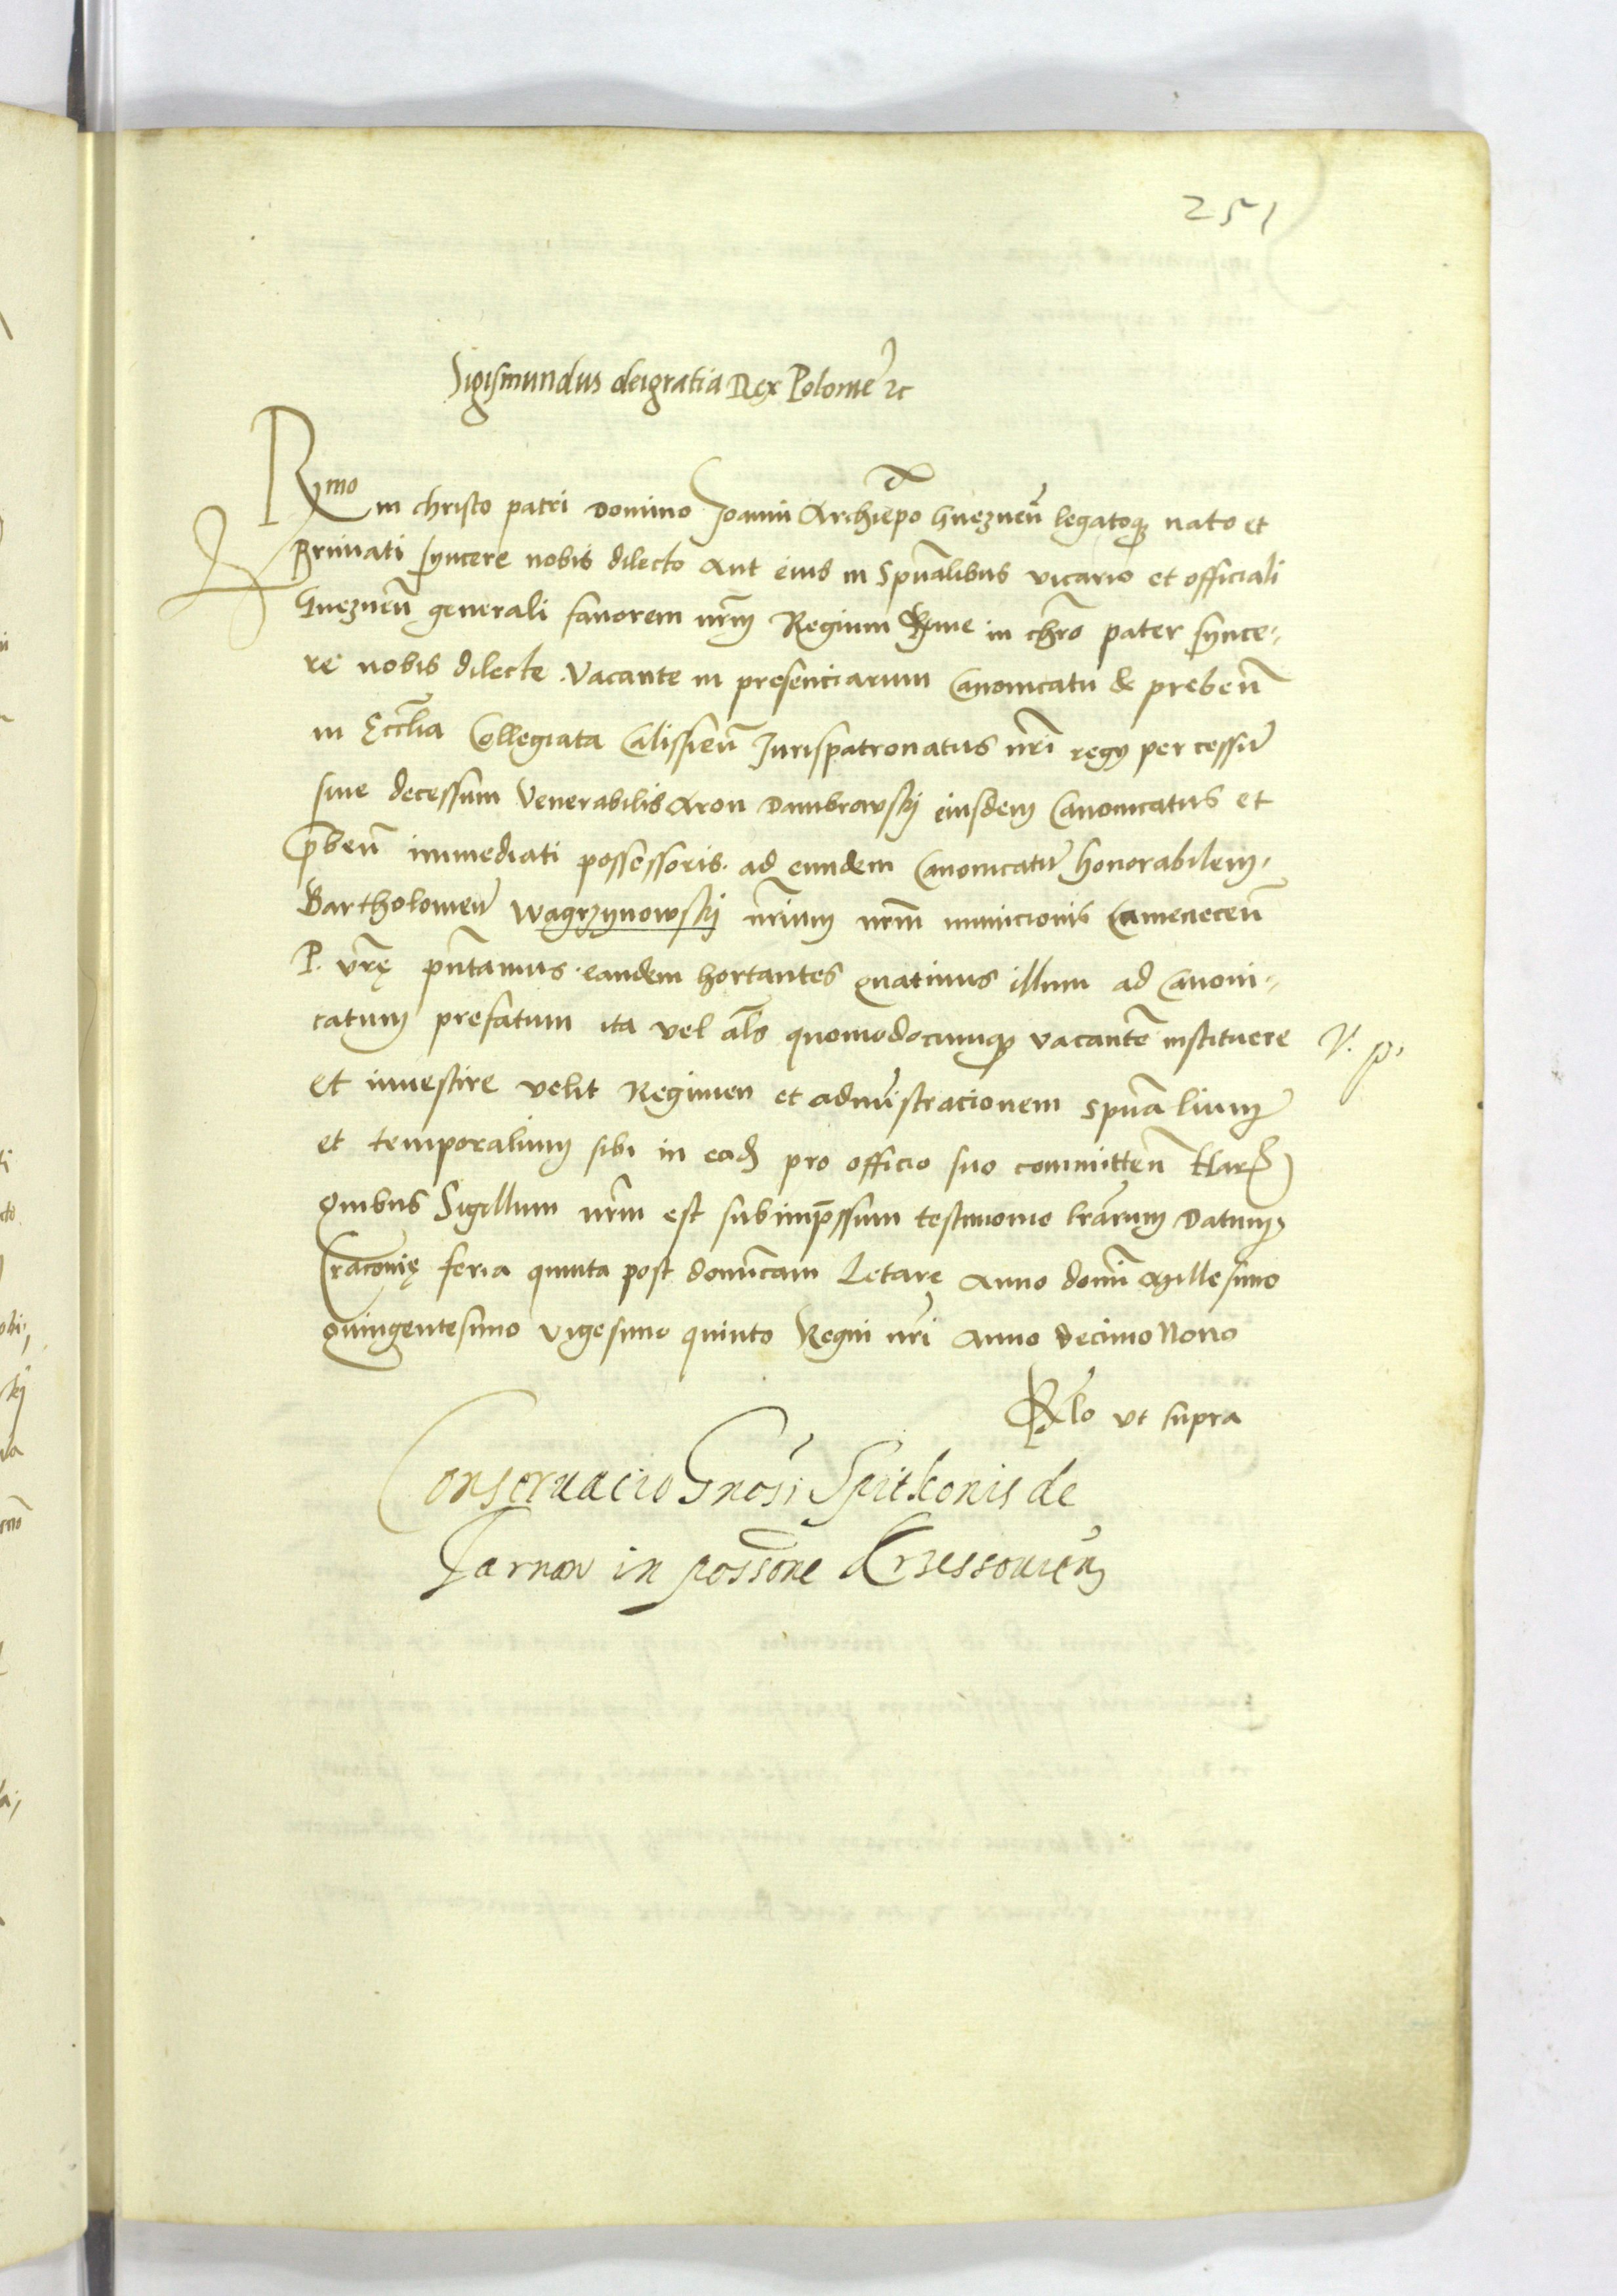 251
Sigismundus dei gratia Rex Polonie ꝛc
Rmo in christo patri Domino Joanni Archiepo Gneznen̄ legatoqꝫ nato et
Primati syncere nobis dilecto Aut eius in Spūalibus vicario et officiali
Gneznen̄ generali fauorem nrm̄ Regium Rme in chrō pater synce-
re nobis dilecte . Vacante in presenciarum Canonicatu & preben̄
in Ecclīa Collegiata Calissien̄ Jurispatronatus nrī regij per cessū
siue decessum Venerabilis Aron Dambrowskij eiusdem Canonicatus et
p̄ben̄ immediati possessoris. ad eundem Canonicatū honorabilem.
Bartholomeū Wagrzynowskij nr̄ium nrm̄ municionis Camenecen̄
P. vrę̄ pn̄tamus . eandem hortantes quatinus illum ad Canoni-
catum prefatum ita vel al̄s quomodocunqꝫ vacantē instituere
V. p.
et inuestire velit Regimen et adminīstracionem spūalium
et temporalium sibi in eadꝫ pro officio suo committen̄ Harꝫ
Quibus Sigillum nrm̄ est subimp̄ssum testimonio lrārum Datum
Cracouię feria quinta post domīcam Letare Anno domī Millesimo
Quingentesimo vigesimo quinto Regni nrī Anno Decimo Nono
Rel̄o vt supra
Conseruacio Gnosi Spitkonis de
Tarnow in possone Krzessouien̄